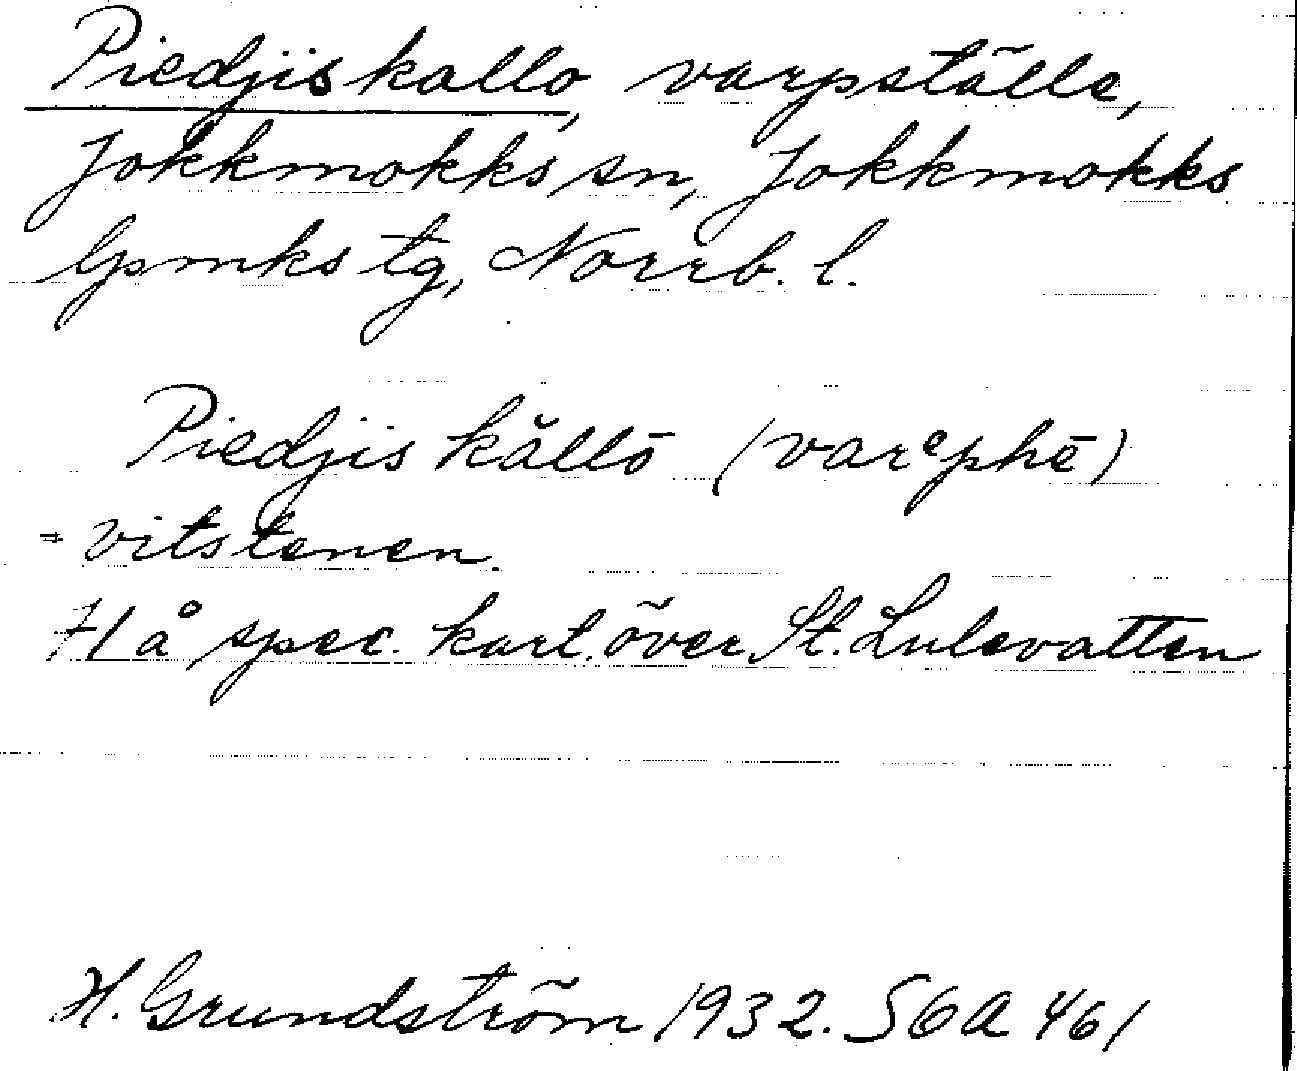 Piedjiskallo, varpställe,
Jokkmokks sn, Jokkmokks
lpmks tg, Norrb. l.
Piedjis kăllō (varᵉphē)
= vitstenen.
71 å spec. kart. över St. Lulevatten
H. Grundström 1932. SOA 461